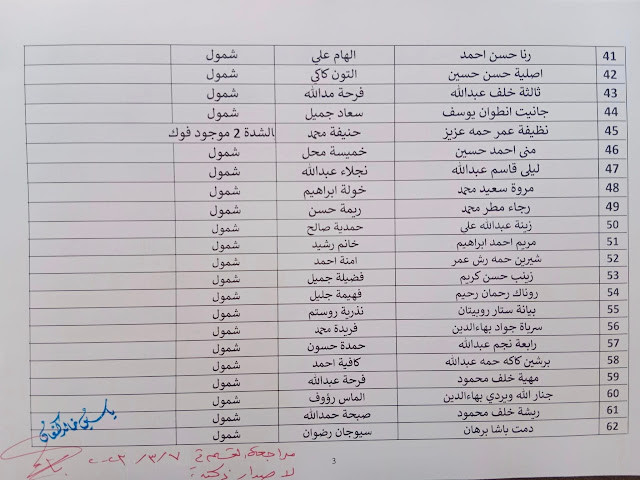 41 رنا حسن احمد الهام علي شمول
42 اصلية حسن حسين التون كاكي شمول
43 ثالثة خلف عبدالله فرحة مدالله شمول
44 جانيت انطوان يوسف سعاد جميل شمول
45 نظيفة عمر حمه عزيز حنيفة محمد بالشدة 2 موجود فوك
46 منى احمد حسين خميسة محل شمول
47 ليلى قاسم عبدالله نجلاء عبدالله شمول
48 مروة سعيد محمد خولة ابراهيم شمول
49 رجاء مطر محمد ريمة حسن شمول
50 زينة عبدالله علي حمدية صالح شمول
51 مريم احمد ابراهيم خانم رشيد شمول
52 شيرين حمه رش عمر امنة احمد شمول
53 زينب حسن كريم فضيلة جميل شمول
54 روناك رحمان رحيم فهيمة جليل شمول
55 بيانة ستار روبيتان نذرية روستم شمول
56 سرياة جواد بهاءالدين فريدة محمد شمول
57 رابعة نجم عبدالله حمدة حسون شمول
58 برشين كاكه حمه عبدالله كافية احمد شمول
59 مهية خلف محمود فرحة عبدالله شمول
60 جنار الله ويردي بهاءالدين الماس رؤوف شمول
61 ريشة خلف محمود صبحة حمدالله شمول
62 دمت باشا برهان سيوجان رضوان شمول
مراجعة القسم في ٢٠٢٣/٣/٧
لاصدار
3